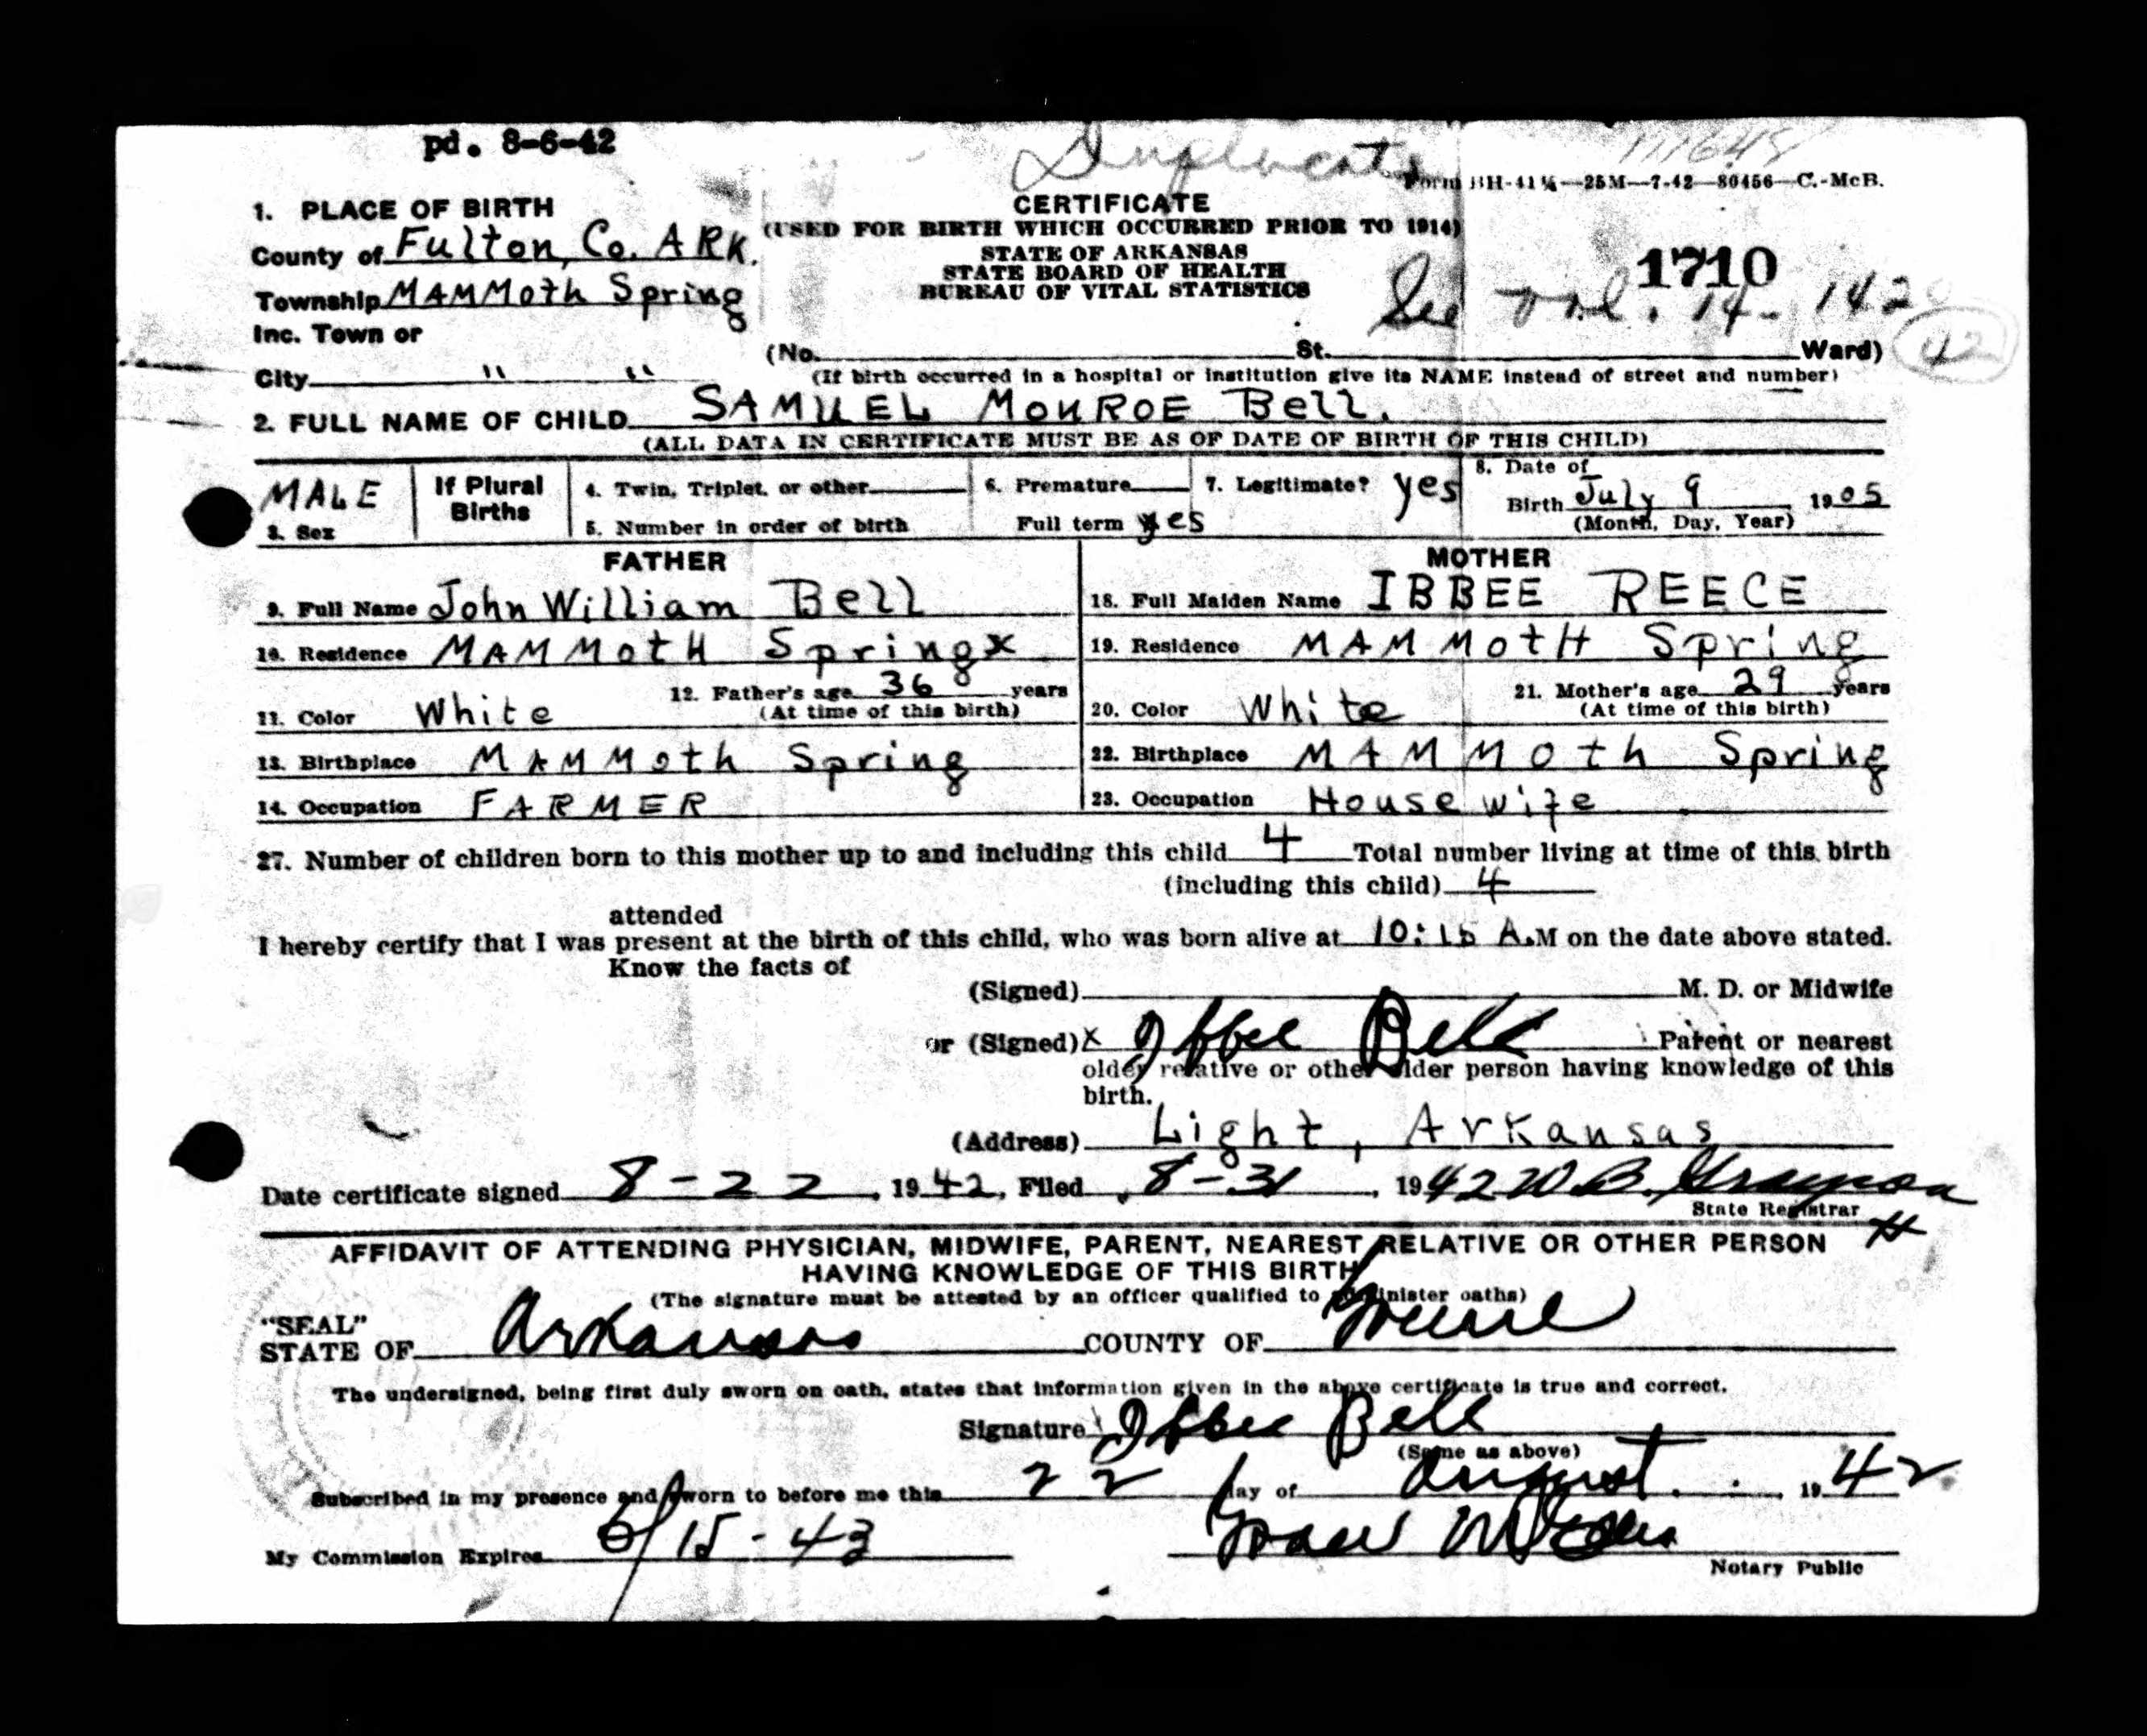 pd. 8-6-42
Duplicate
Form BH-41¼—25M—7-42—80456—C.-McB.
1. PLACE OF BIRTH
County of Fulton, Co. ARK.
Township MAMMoth Spring
Inc. Town or
City " "
CERTIFICATE
(USED FOR BIRTH WHICH OCCURRED PRIOR TO 1914)
STATE OF ARKANSAS
STATE BOARD OF HEALTH
BUREAU OF VITAL STATISTICS
1710
See vol. 14 - 142
(No. St. Ward)
(If birth occurred in a hospital or institution give its NAME instead of street and number)
2. FULL NAME OF CHILD SAMUEL MONROE Bell.
(ALL DATA IN CERTIFICATE MUST BE AS OF DATE OF BIRTH OF THIS CHILD)
MALE
3. Sex
If Plural Births
4. Twin, Triplet, or other
5. Number in order of birth
6. Premature
Full term yes
7. Legitimate? yes
8. Date of
Birth July 9 1905
(Month, Day, Year)
FATHER
9. Full Name John William Bell
10. Residence MAMMotH Spring x
11. Color White
12. Father's age 36 years
(At time of this birth)
13. Birthplace MAMMoth Spring
14. Occupation FARMER
MOTHER
18. Full Maiden Name IBBEE REECE
19. Residence MAMMotH Spring
20. Color White
21. Mother's age 29 years
(At time of this birth)
22. Birthplace MAMMoth Spring
23. Occupation House wife
27. Number of children born to this mother up to and including this child 4 Total number living at time of this birth
(including this child) 4
attended
I hereby certify that I was present at the birth of this child, who was born alive at 10:15 A.M on the date above stated.
Know the facts of
(Signed) M. D. or Midwife
or (Signed) x Ibbee Bell Parent or nearest
older relative or other older person having knowledge of this
birth.
(Address) Light, Arkansas
Date certificate signed 8-22, 1942, Filed 8-31, 1942 W.B. Grayson
State Registrar
H
AFFIDAVIT OF ATTENDING PHYSICIAN, MIDWIFE, PARENT, NEAREST RELATIVE OR OTHER PERSON
HAVING KNOWLEDGE OF THIS BIRTH
(The signature must be attested by an officer qualified to administer oaths)
"SEAL"
STATE OF Arkansas COUNTY OF Greene
The undersigned, being first duly sworn on oath, states that information given in the above certificate is true and correct.
Signature Ibbee Bell
(Same as above)
Subscribed in my presence and sworn to before me this 22 day of August, 1942
My Commission Expires 6/15-43
Notary Public